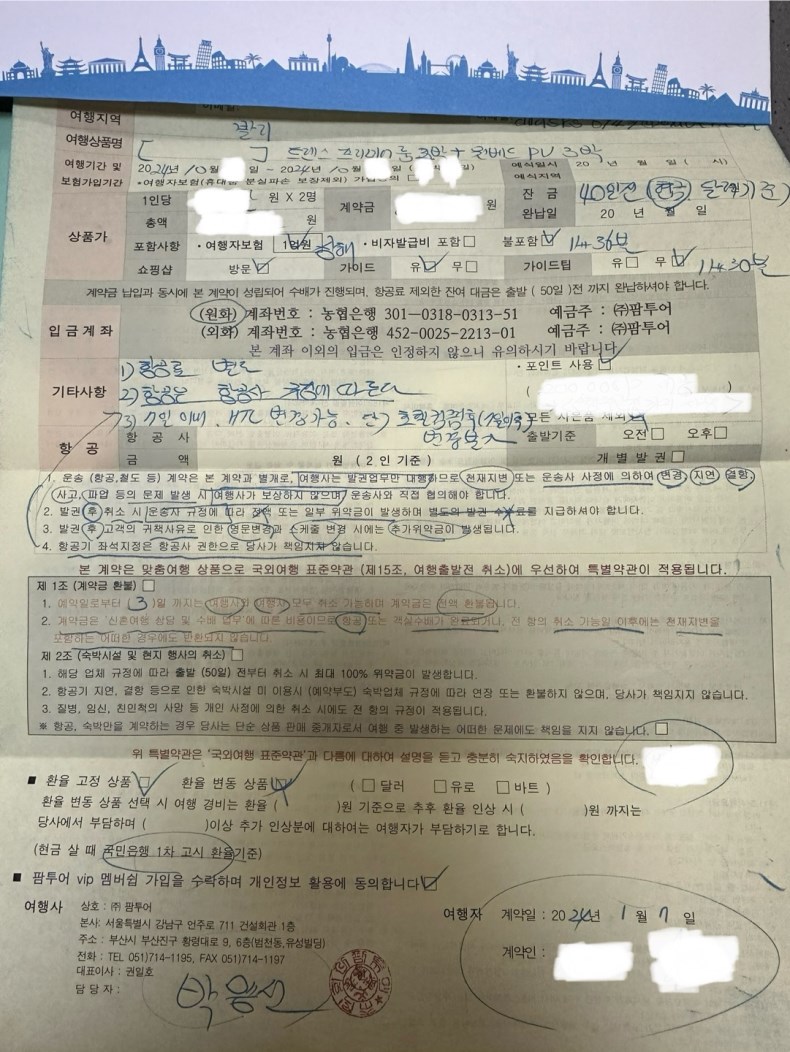 여행지역 발리
여행상품명 [ ] 트랜스 프리미어 룸 3박 + PV 3박
여행기간 및 보험가입기간 2024년 10월 일 - 2024년 10월 일 예식일시 20 년 월 일 ( 시)
•여행자보험(휴대품 분실파손 보장제외) 예식지역
상품가 1인당 원 X 2명 계약금 원 잔금 40일전 (현금)
총액 원 완납일 20 년 월 일
포함사항 •여행자보험 1억원 •비자발급비 포함□ 불포함☑
쇼핑샵 방문☑ 가이드 유☑ 무□ 가이드팁 유□ 무☑
계약금 납입과 동시에 본 계약이 성립되어 수배가 진행되며, 항공료 제외한 잔여 대금은 출발 ( 50일 )전 까지 완납하셔야 합니다.
입금계좌 (원화) 계좌번호 : 농협은행 301—0318-0313-51 예금주 : ㈜팜투어
(외화) 계좌번호 : 농협은행 452-0025-2213-01 예금주 : ㈜팜투어
본 계좌 이외의 입금은 인정하지 않으니 유의하시기 바랍니다.
기타사항 1) 항공료 변동 •포인트 사용☑
2) 항공은 항공사 규정에 따른다 ( )
3) 7일 이내, HTL 변경가능. 단,
항공 항공사 출발기준 오전□ 오후□
금 액 원 (2인 기준) 개별발권□
1. 운송 (항공,철도 등) 계약은 본 계약과 별개로, 여행사는 발권업무만 대행하므로 천재지변 또는 운송사 사정에 의하여 변경, 지연, 결항,
사고, 파업 등의 문제 발생 시 여행사가 보상하지 않으며, 운송사와 직접 협의해야 합니다.
2. 발권 後 취소 시 운송사 규정에 따라 전액 또는 일부 위약금이 발생하며 별도의 발권 수수료를 지급하셔야 합니다.
3. 발권 後 고객의 귀책사유로 인한 영문변경과 스케줄 변경 시에는 추가위약금이 발생됩니다.
4. 항공기 좌석지정은 항공사 권한으로 당사가 책임지지 않습니다.
본 계약은 맞춤여행 상품으로 국외여행 표준약관 (제15조, 여행출발전 취소)에 우선하여 특별약관이 적용됩니다.
제 1조 (계약금 환불) □
1. 예약일로부터 ( 3 )일 까지는 여행사와 여행자 모두 취소 가능하며 계약금은 전액 환불됩니다.
2. 계약금은 '신혼여행 상담 및 수배 업무'에 따른 비용이므로 항공 또는 객실수배가 완료되거나, 전 항의 취소 가능일 이후에는 천재지변을
포함하는 어떠한 경우에도 반환되지 않습니다.
제 2조 (숙박시설 및 현지 행사의 취소) □
1. 해당 업체 규정에 따라 출발 (50일) 전부터 취소 시 최대 100% 위약금이 발생합니다.
2. 항공기 지연, 결항 등으로 인한 숙박시설 미 이용시 (예약부도) 숙박업체 규정에 따라 연장 또는 환불하지 않으며, 당사가 책임지지 않습니다.
3. 질병, 임신, 친인척의 사망 등 개인 사정에 의한 취소 시에도 전 항의 규정이 적용됩니다.
※ 항공, 숙박만을 계약하는 경우 당사는 단순 상품 판매 중개자로서 여행 중 발생하는 어떠한 문제에도 책임을 지지 않습니다. □
위 특별약관은 '국외여행 표준약관'과 다름에 대하여 설명을 듣고 충분히 숙지하였음을 확인합니다.
■ 환율 고정 상품 ☑ 환율 변동 상품 ☑ ( □ 달러 □ 유로 □ 바트 )
환율 변동 상품 선택 시 여행 경비는 환율 ( )원 기준으로 추후 환율 인상 시 ( )원 까지는
당사에서 부담하며 ( )이상 추가 인상분에 대하여는 여행자가 부담하기로 합니다.
(현금 살 때 국민은행 1차 고시 환율기준)
■ 팜투어 vip 멤버쉽 가입을 수락하며 개인정보 활용에 동의합니다☑
여행사 상호 : ㈜ 팜투어
본사: 서울특별시 강남구 언주로 711 건설회관 1층
주소 : 부산시 부산진구 황령대로 9, 6층(범천동,유성빌딩)
전화 : TEL 051)714-1195, FAX 051)714-1197
대표이사 : 권일호
담당자 :
여행자 계약일 : 2024년 1월 7일
계약인 :